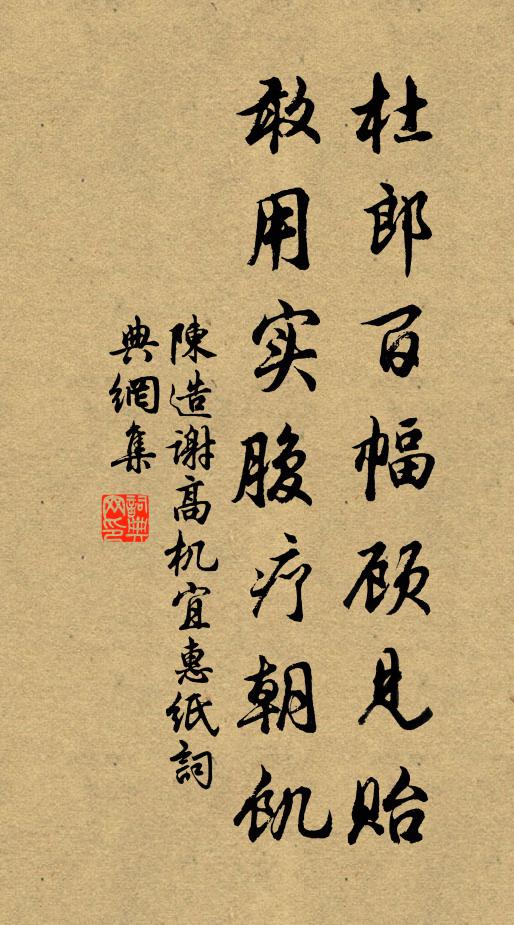 杜郎百幅顾见贻
敢用实腹疗朝饥
陳造谢高机宜惠紙詞
典網集
詞典
网印